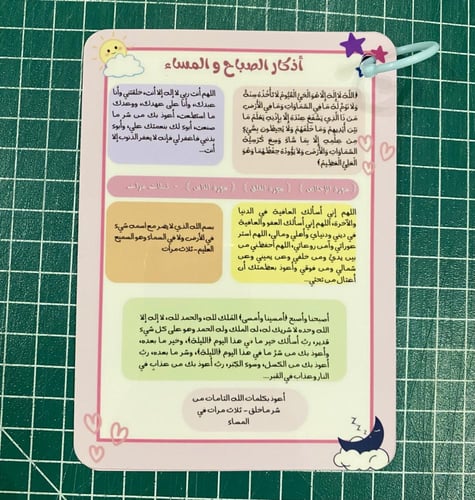 أذكار الصباح و المساء
﴿اللَّهُ لَا إِلَهَ إِلَّا هُوَ الْحَيُّ الْقَيُّومُ لَا تَأْخُذُهُ سِنَةٌ
وَلَا نَوْمٌ لَهُ مَا فِي السَّمَاوَاتِ وَمَا فِي الْأَرْضِ
مَنْ ذَا الَّذِي يَشْفَعُ عِنْدَهُ إِلَّا بِإِذْنِهِ يَعْلَمُ مَا
بَيْنَ أَيْدِيهِمْ وَمَا خَلْفَهُمْ وَلَا يُحِيطُونَ بِشَيْءٍ
مِنْ عِلْمِهِ إِلَّا بِمَا شَاءَ وَسِعَ كُرْسِيُّهُ
السَّمَاوَاتِ وَالْأَرْضَ وَلَا يَئُودُهُ حِفْظُهُمَا وَهُوَ
الْعَلِيُّ الْعَظِيمُ﴾
اللهم أنت ربي لا إله إلا أنت، خلقتني وأنا
عبدك، وأنا على عهدك، ووعدك
ما استطعت، أعوذ بك من شر ما
صنعت، أبوء لك بنعمتك علي، وأبوء
بذنبي فاغفر لي فإنه لا يغفر الذنوب إلا
أنت...
(سورة الإخلاص) (سورة الفلق) (سورة الناس) - ثلاث مرات
اللهم إني أسألك العافية في الدنيا
والآخرة، اللهم إني أسألك العفو والعافية
في ديني ودنياي وأهلي ومالي، اللهم استر
عوراتي وآمن روعاتي، اللهم احفظني من
بين يدي ومن خلفي وعن يميني وعن
شمالي ومن فوقي وأعوذ بعظمتك أن
أغتال من تحتي...
بسم الله الذي لا يضر مع اسمه شيء
في الأرض ولا في السماء وهو السميع
العليم - ثلاث مرات
أصبحنا وأصبح (أمسينا وأمسى) الملك لله، والحمد لله، لا إله إلا
الله وحده لا شريك له، له الملك وله الحمد وهو على كل شيء
قدير، رب أسألك خير ما في هذا اليوم (الليلة)، وخير ما بعده،
وأعوذ بك من شر ما في هذا اليوم (الليلة)، وشر ما بعده، رب
أعوذ بك من الكسل، وسوء الكبر، رب أعوذ بك من عذاب في
النار وعذاب في القبر...
أعوذ بكلمات الله التامات من
شر ما خلق - ثلاث مرات في
المساء
z z z